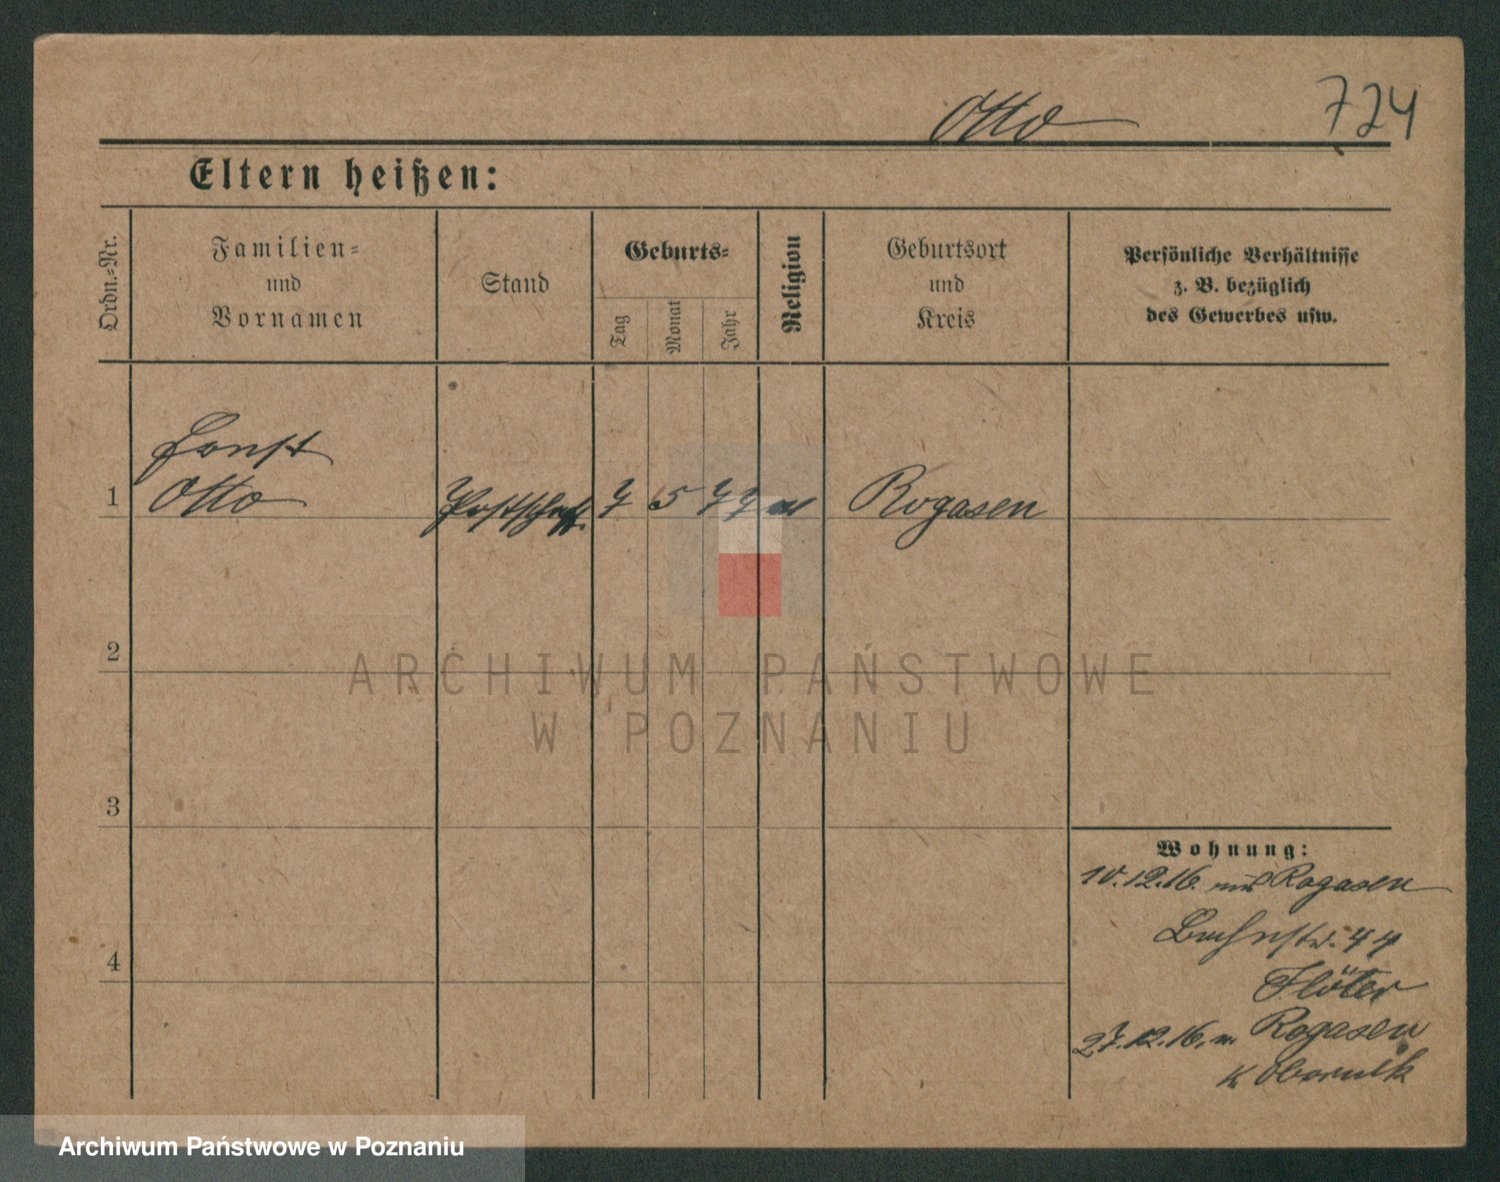 Otto 724
Eltern heißen:
Ordn.-Nr.
Familien-
und
Vornamen
Stand
Geburts-
Tag
Monat
Jahr
Religion
Geburtsort
und
Kreis
Persönliche Verhältnisse
z. B. bezüglich
des Gewerbes usw.
Ernst
1 Otto Postschaff. 7 5 77 Rogasen
2
ARCHIWUM PAŃSTWOWE
W POZNANIU
3
Wohnung:
10.12.16. Rogasen
44
4
Flöter
27.12.16. Rogasen
K Obornik
Archiwum Państwowe w Poznaniu